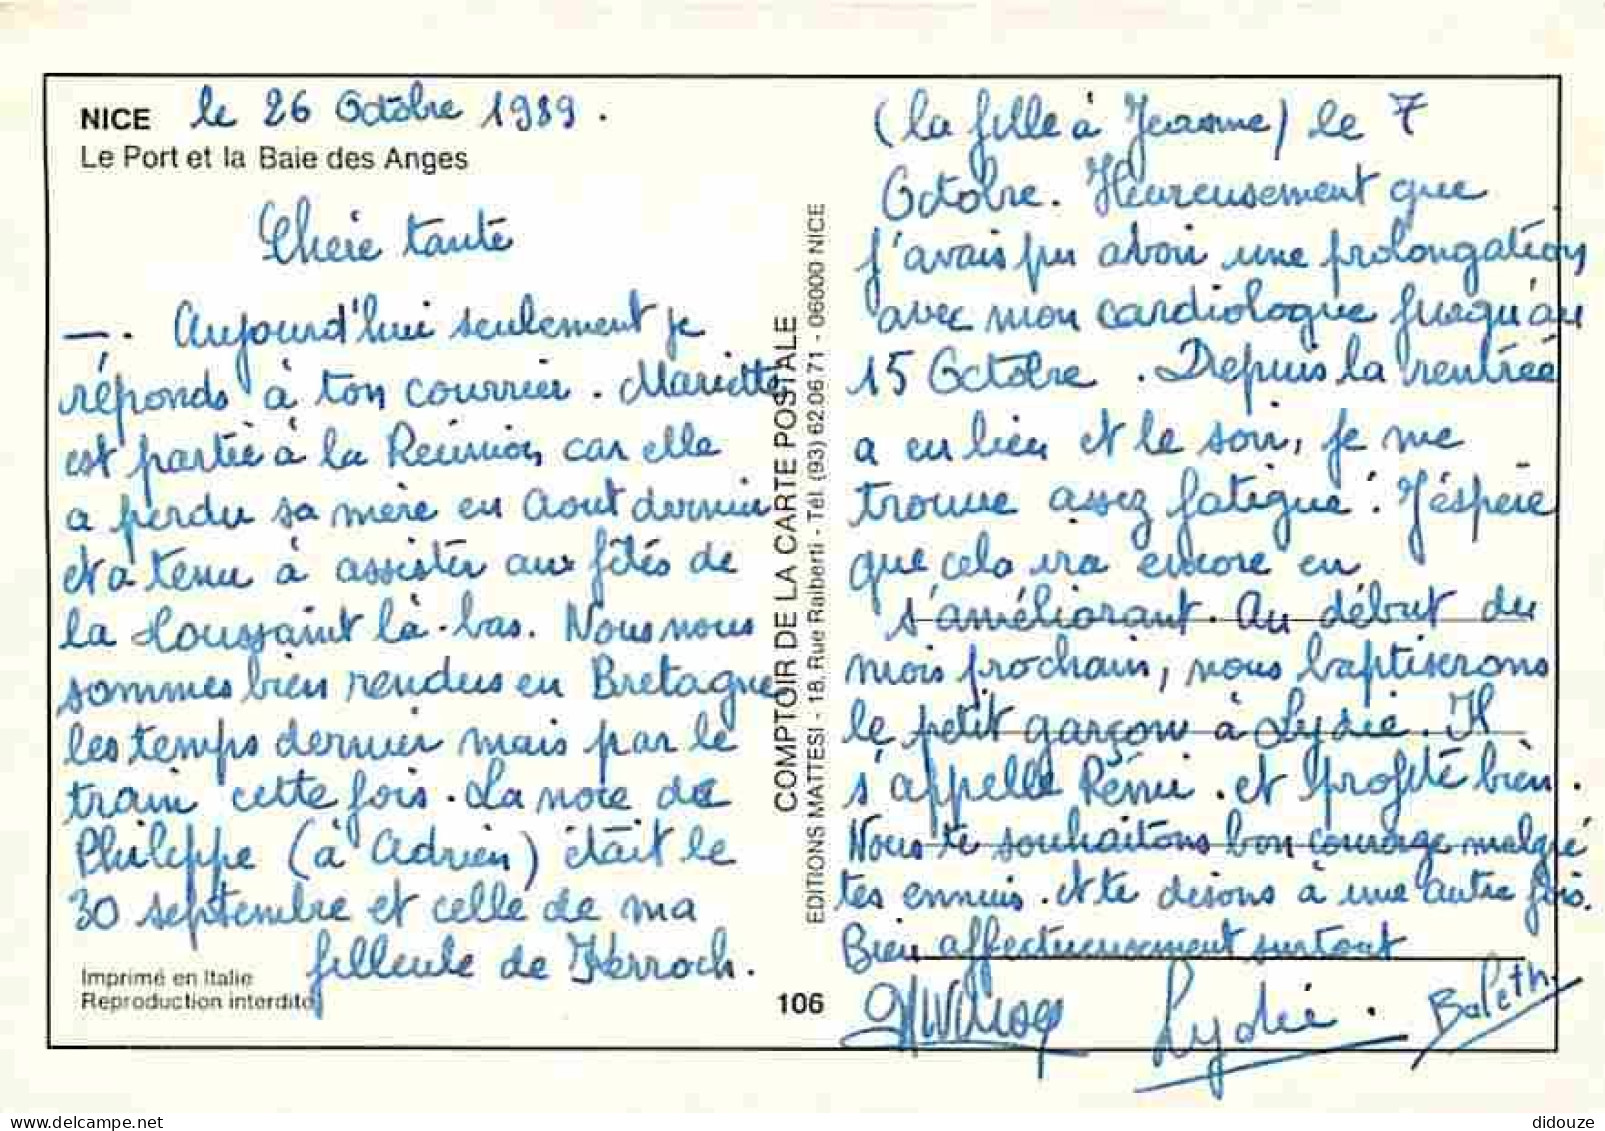 NICE le 26 Octobre 1989.
Le Port et la Baie des Anges
Chère tante
—. Aujourd'hui seulement je
réponds à ton courrier. Mariette
est partie à la Réunion car elle
a perdu sa mère en Aout dernier
et a tenu à assister aux fêtes de
la Toussaint là-bas. Nous nous
sommes bien rendus en Bretagne
les temps dernier mais par le
train cette fois. La noce de
Philippe (à Adrien) était le
30 septembre et celle de ma
filleule de Kerroch.
Imprimé en Italie
Reproduction interdite
106
COMPTOIR DE LA CARTE POSTALE
EDITIONS MATTESI - 18, Rue Raiberti - Tél. (93) 62.06.71 - 06000 NICE
(la fille à Jeanne) le 7
Octobre. Heureusement que
j'avais pu avoir une prolongation
avec mon cardiologue jusqu'au
15 Octobre. Depuis la rentrée
a eu lieu et le soir, je me
trouve assez fatigué. J'éspère
que cela ira encore en
s'améliorant. Au début du
mois prochain, nous baptiserons
le petit garçon à Lydie. Il
s'appelle Rémi. et profite bien.
Nous te souhaitons bon courage malgré
tes ennuis. et te disons à une autre fois.
Bien affectueusement surtout
Lydie.
didouze